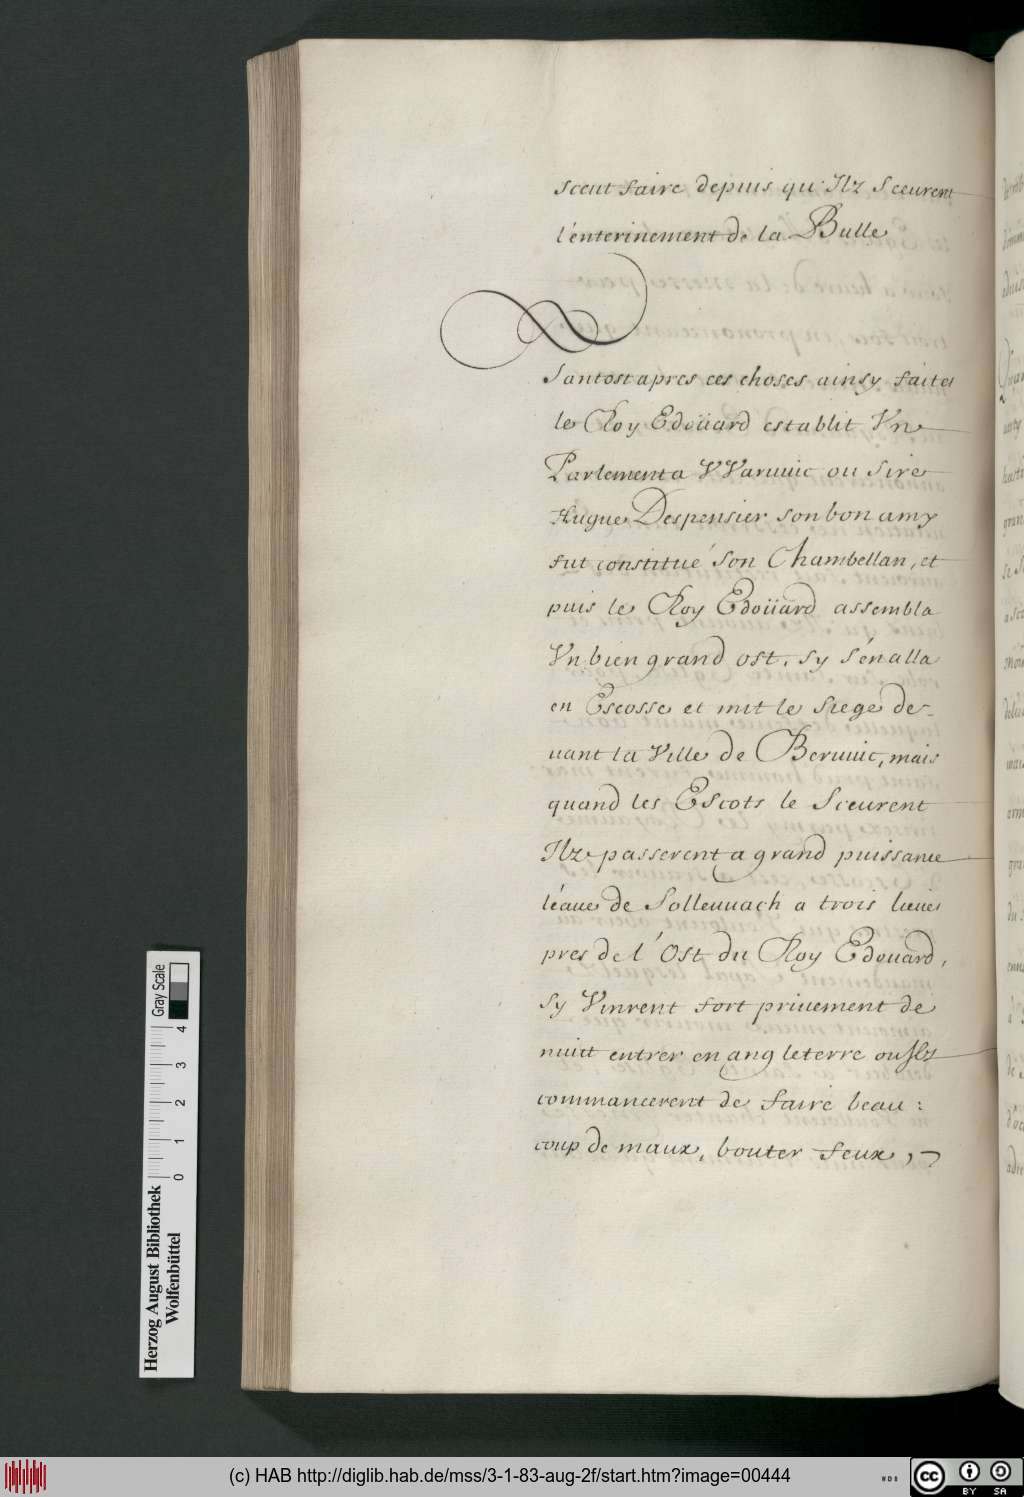 sceut faire depuis qu'Ilz Sceurent
l'enterinement de la Bulle
Tantost apres ces choses ainsy faites
le Roy Edoüard establit Vn
Parlement a VVaruuic ou Sire
Hugue Despensier son bon amy
fut constitué son Chambellan, et
puis le Roy Edoüard assembla
Vn bien grand ost, sy s'en alla
en Escosse et mit le siege de-
uant la Ville de Beruuic, mais
quand les EScots le Sceurent
Ilz passerent a grand puissance
léaue de Solleuuach a trois lieues
pres de l'Ost du Roy Edouard,
sy Vinrent fort priuement de
nuict entrer en angleterre ou Ilz
commancerent de faire beau:
coup de maux, bouter feux,
Herzog August Bibliothek
Wolfenbüttel
Gray Scale
0 1 2 3 4
(c) HAB http://diglib.hab.de/mss/3-1-83-aug-2f/start.htm?image=00444
WDB
cc BY SA